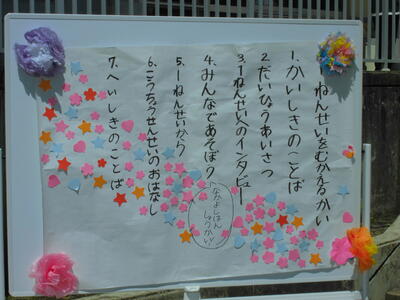 1ねんせいをむかえるかい
1.かいしきのことば
2.だいひょうあいさつ
3.1ねんせいへのインタビュー
4.みんなであそぼう
なかよしはん
しょうかい
5.1ねんせいから
6.こうちょうせんせいのおはなし
7.へいしきのことば